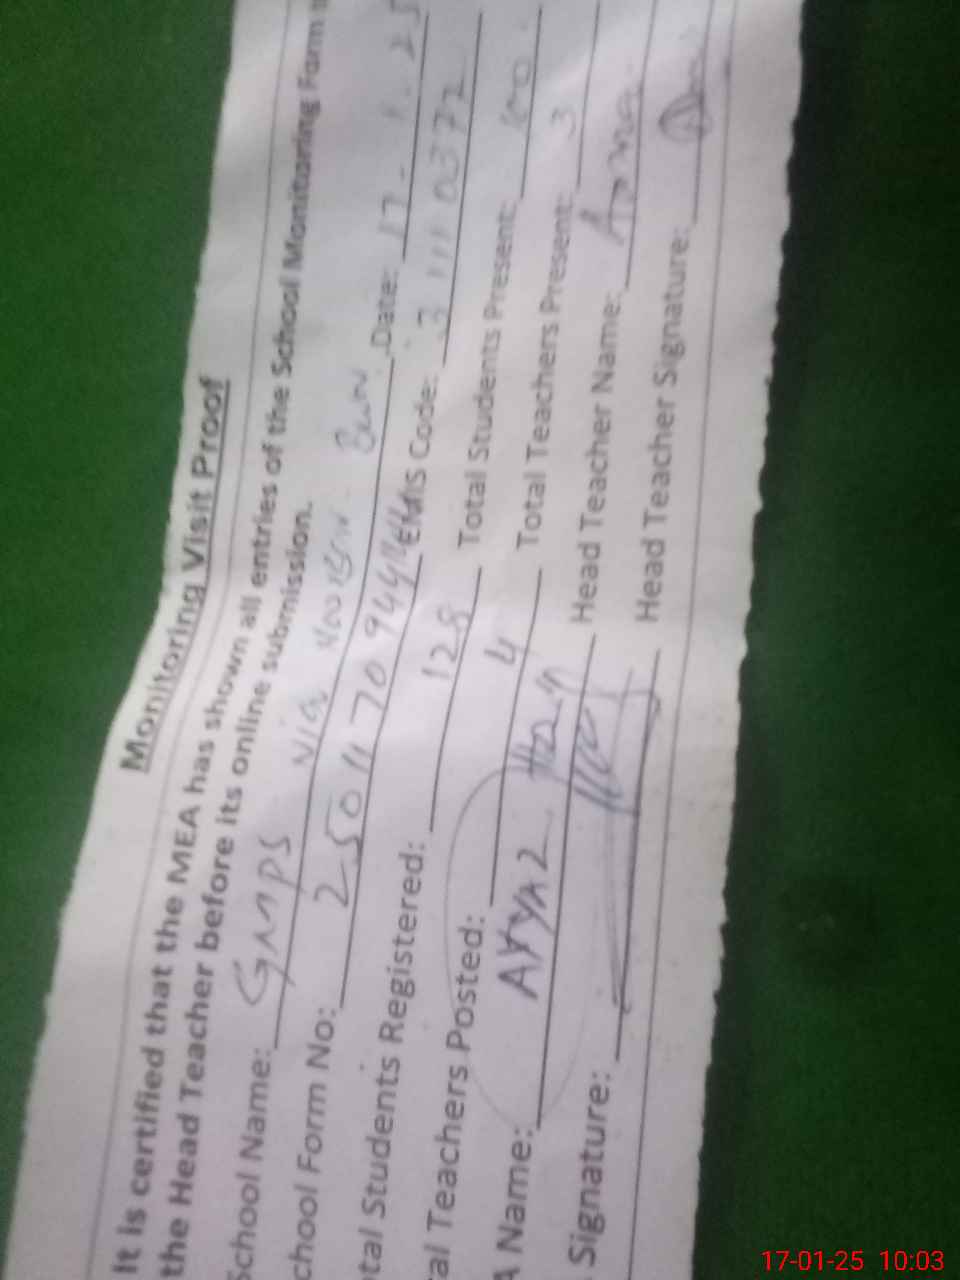 Monitoring Visit Proof
It is certified that the MEA has shown all entries of the School Monitoring Form
the Head Teacher before its online submission.
School Name: GMPS Date: 17-1-25
chool Form No: EMIS Code:
tal Students Registered: 128 Total Students Present: 100
al Teachers Posted: 4 Total Teachers Present: 3
A Name: AYYAZ Head Teacher Name:
Signature: Head Teacher Signature:
17-01-25 10:03